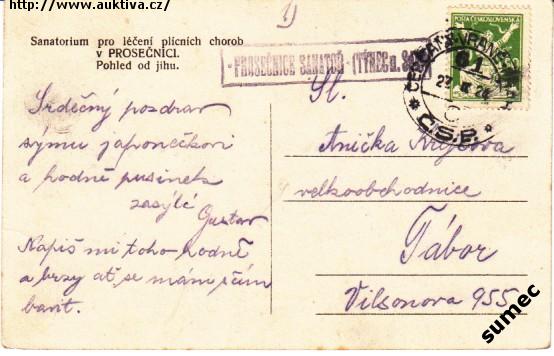 http://www.auktiva.cz/
Sanatorium pro léčení plicních chorob
v PROSEČNICI.
Pohled od jihu.
PROSEČNICE SANATOŘ (TÝNEC n. SÁZ.)
POŠTA ČESKOSLOVENSKÁ
Č.S.P.
Srdečný pozdrav
svýmu japončíkovi
a hodně pusinek
zasýlá
Gustav
Napiš mi toho hodně
a brzy ať se mám s čím
bavit.
Sl.
Anička
velkoobchodnice
Tábor
Vilsonova 955
sumec